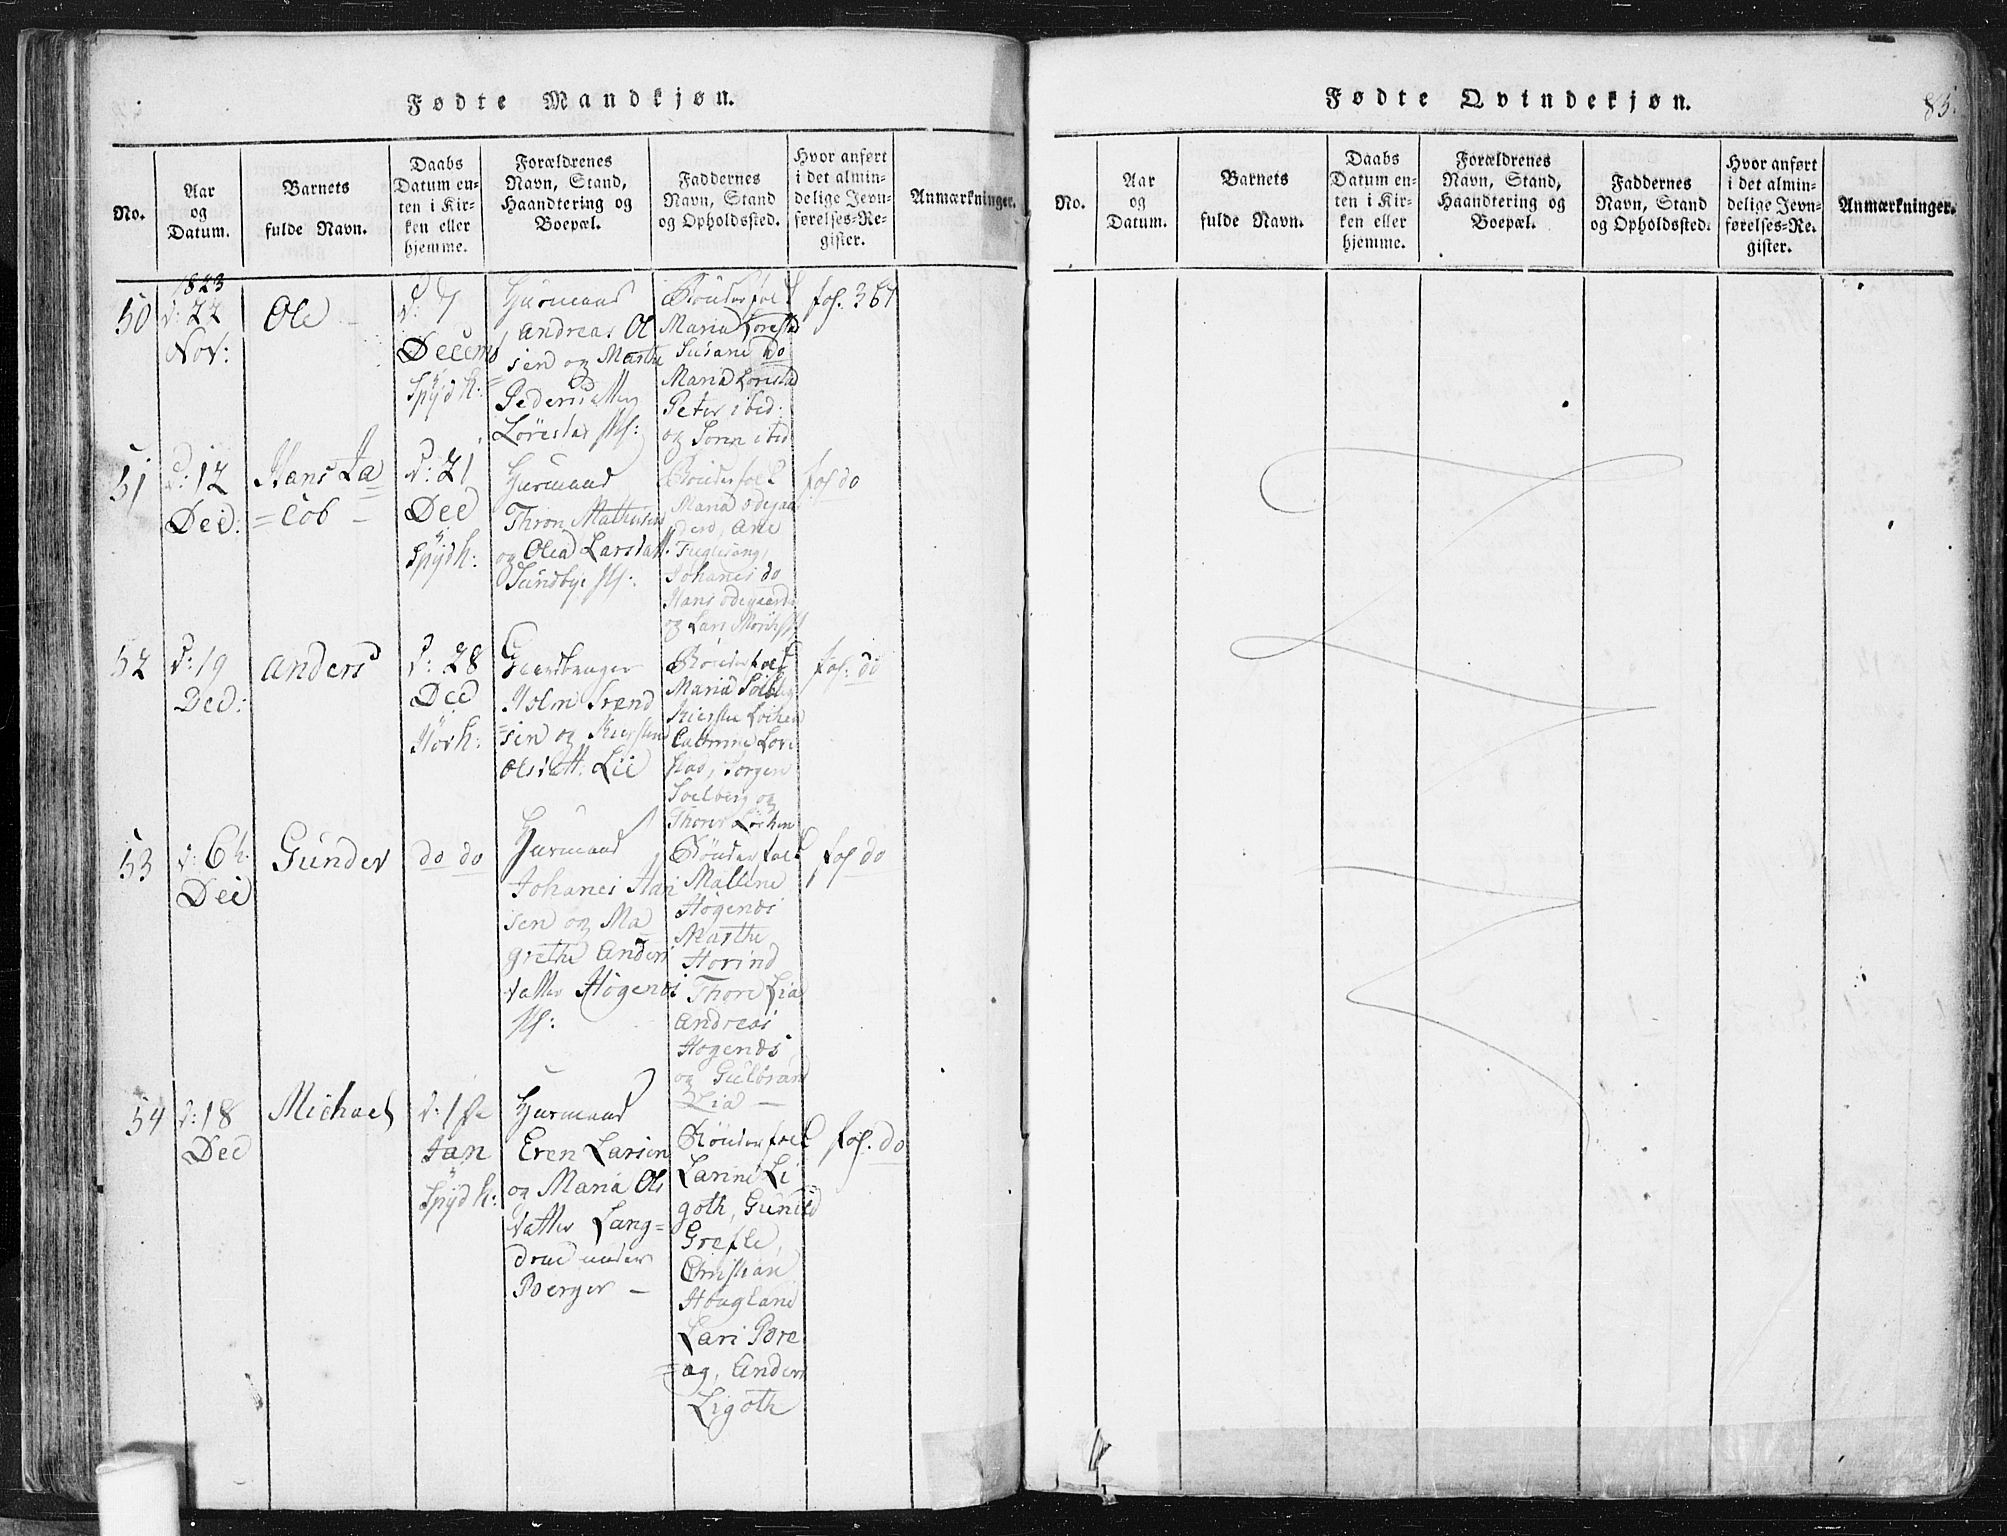 Fødte Mandkjøn.
No.
Aar
og
Datum.
Barnets
fulde Navn.
Daabs
Datum en-
ten i Kir-
ken eller
hjemme.
Forældrenes
Navn, Stand,
Haandtering og
Boepæl.
Faddernes
Navn, Stand
og Opholdssted.
Hvor anført
i det almin-
delige Jevn-
førelses-Re-
gister.
Anmærkninger.
50
1823
d: 22
Nov:
Ole
d: 7
Decemb
Spydk:
Huusmand
Andreas Ol
sen og Marthe
Pedersdatter
Lörestad
Bönderfolk
Maria Lorestad
Susane do
Maria Lorestad
Peter ibid:
og Sören ibid
fol. 367
51
d: 12
Dec:
Hans Ja
=cob
d: 21
Dec
Spydk:
Huusmand
Thron Mathiesen
og Olea Larsdatt.
Sundbye
Bönderfolk
Maria Odegaa
Ane
Fuglesang,
Johanes do
Hans Odegaard
og Lars
fol do
52
d: 19
Dec:
Anders
d: 28
Dec
Hovk:
Gaardbruger
Holm Svend
=sen og Kiersten
Olsdatt: Lie
Bönderfolk
Maria Solberg
Kierstie Löcken
Cathrine Lore
stad, Jörgen
Soelberg og
Thores Löcken
fol. do
53
d: 6h.
Dec
Gunder
do do
Huusmand
Johanes Han
sen og Ma
grethe Anders
datter Högenæs
Bönderfolk
Mallene
Högenæs
Marthe
Horind
Thore Lia
Andreas
Hogenæs
og
Lia
fol do
54
d: 18
Dec
Michael
d: 1ste
Jan
Spydk:
Huusmand
Even Larsen
og Maria Ols
datter Lang=
drae under
Berger
Bönderfolk
Larine Li
goth, Gunild
Grefle,
Christian
Houglane
Lars Bore
=ag, Anders
Ligoth
fol. do
Fødte Qvindekjøn.
85.
No.
Aar
og
Datum.
Barnets
fulde Navn.
Daabs
Datum en-
ten i Kir-
ken eller
hjemme.
Forældrenes
Navn, Stand,
Haandtering og
Boepæl.
Faddernes
Navn, Stand
og Opholdssted.
Hvor anført
i det almin-
delige Jevn-
førelses-Re-
gister.
Anmærkninger.